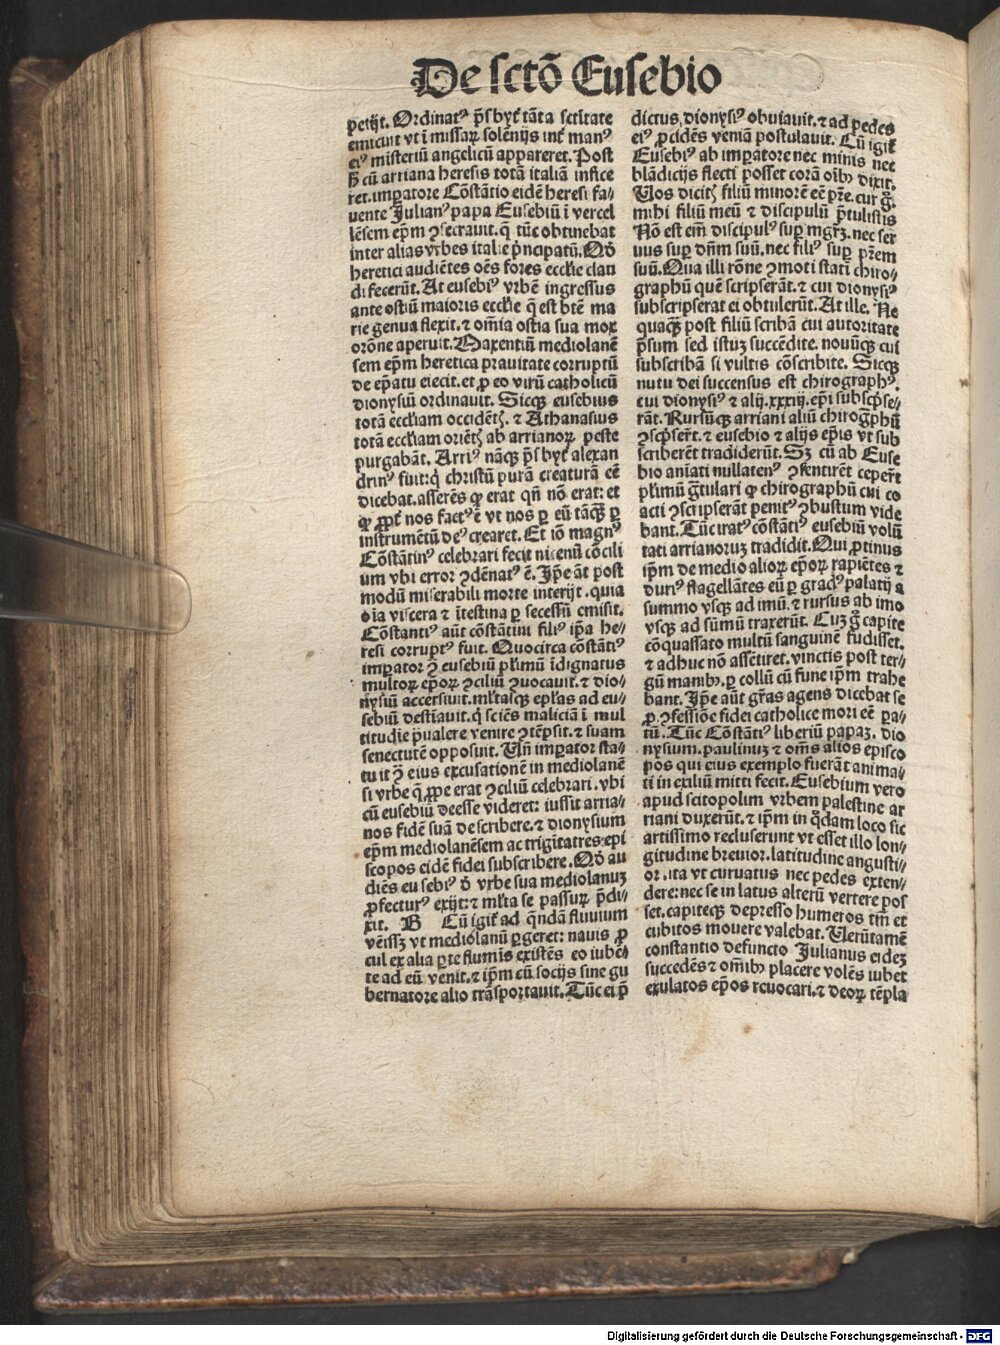 De sctō Eusebio
petijt. Ordinatꝰ p̄sbyt̄ tāta sctītate
emicuit vt ī missaꝝ solēnijs int̄ manꝰ
eiꝰ misteriū angelicū appareret. Post
h̄ cū arriana heresis totā italiā infice
ret. imꝑatore Cōstātio eidē heresi fa⸗
uente Julianꝰ papa Eusebiū ī vercel
lēsem ep̄m ꝯsecrauit. q̄ tūc obtinebat
inter alias vrbes italie p̄ncipatū. Qd̄
heretici audiētes oēs fores eccl̄ie claudi
fecerūt. At eusebiꝰ vrbē ingressus
ante ostiū maioris eccl̄ie q̄ est btē ma
rie genua flexit. ⁊ om̄ia ostia sua mox
orōne aperuit. Maxentiū mediolanē
sem ep̄m heretica prauitate corruptū
de ep̄atu eiecit. et ꝓ eo virū catholicū
dionysiū ordinauit. Sicqꝫ eusebius
totā eccl̄iam occidēt̄. ⁊ Athanasius
totā eccl̄iam oriēt̄ ab arrianoꝝ peste
purgabāt. Arriꝰ nāqꝫ p̄sbyt̄ alexan
drinꝰ fuit: q̄ christū purā creaturā eē
dicebat. asserēs ꝙ erat qn̄ nō erat: et
ꝙ ꝓpt̄ nos factꝰ ē vt nos ꝑ eū tāqꝫ ꝑ
instrumētū deꝰ crearet. Et iō magnꝰ
Cōstātinꝰ celebrari fecit nicenū cōcili
um vbi error ꝯdēnatꝰ ē. Ip̄e āt post
modū miserabili morte interijt. quia
oīa viscera ⁊ ītestina ꝑ secessū emisit.
Cōstantiꝰ aūt cōstātini filiꝰ ip̄a he⸗
resi corruptꝰ fuit. Quocirca cōstātiꝰ
imꝑator ꝯ eusebiū pl̄imū īdignatus
multoꝝ ep̄oꝝ ꝯciliū ꝯuocauit. ⁊ dio⸗
nysiū accersiuit. ml̄tasqꝫ ep̄l̄as ad eu⸗
sebiū destīauit. q̄ sciēs maliciā ī mul
titudīe p̄ualere venire ꝯtēpsit. ⁊ suam
senectutē opposuit. Vn̄ imꝑator sta⸗
tuit ꝯ eius excusationē in mediolanē
si vrbe q̄ ꝓpe erat ꝯciliū celebrari. vbi
cū eusebiū deesse videret: iussit arria⸗
nos fidē suā describere. ⁊ dionysium
ep̄m mediolanēsem ac trigītatres epi
scopos eidē fidei subscribere. Qd̄ au
diēs eusebiꝰ d̄ vrbe sua mediolanuꝫ
ꝓfecturꝰ exijt: ⁊ ml̄ta se passuꝝ p̄di⸗
xit. B Cū igit̄ ad quēdā fluuium
vēissꝫ vt mediolanū ꝑgeret: nauis ꝓ
cul ex alia ꝑte flumīs existēs eo iubē⸗
te ad eū venit. ⁊ ip̄m cū socijs sine gu
bernatore alio trāsportauit. Tūc ei p̄
dictus dionysiꝰ obuiauit. ⁊ ad pedes
eiꝰ ꝓcidēs veniā postulauit. Cū igit̄
Eusebiꝰ ab imꝑatore nec minis nec
blādicijs flecti posset corā oībꝰ dixit.
Vos dicitꝭ filiū minorē eē pr̄e. cur g̊
mihi filiū meū ⁊ discipulū p̄tulistis
Nō est em̄ discipulꝰ suꝑ mgr̄ꝫ. nec ser
uus suꝑ dn̄m suū. nec filiꝰ suꝑ pr̄em
suū. Qua illi rōne ꝯmoti statī chiro⸗
graphū quē scripserāt. ⁊ cui dionysiꝰ
subscripserat ei obtulerūt. At ille. Ne
quaqꝫ post filiū scribā cui autoritate
p̄sum sed istuꝫ succēdite. nouūqꝫ cui
subscribā si vultis cōscribite. Sicqꝫ
nutu dei succensus est chirographꝰ.
cui dionysiꝰ ⁊ alij. xxxiij. ep̄i subscp̄se⸗
rāt. Rursūqꝫ arriani aliū chirogr̄phū
ꝯscp̄ser̄t. ⁊ eusebio ⁊ alijs ep̄is vt sub
scriberēt tradiderūt. Sꝫ cū ab Euse
bio aīati nullatenꝰ ꝯsentirēt ceper̄t
pl̄imū gr̄tulari ꝙ chirographū cui co
acti ꝯscripserāt penitꝰ ꝯbustum vide
bant. Tūc iratꝰ cōstātiꝰ eusebiū volū
tati arrianoruꝫ tradidit. Qui ꝓtinus
ip̄m de medio alioꝝ ep̄oꝝ rapiētes ⁊
duriꝰ flagellātes eū ꝑ gradꝰ palatij a
summo vsqꝫ ad imū. ⁊ rursus ab imo
vsqꝫ ad sūmū traxerūt. Cuꝫ g̊ capite
cōquassato multū sanguinē fudisset.
⁊ adhuc nō assētiret. vinctis post ter⸗
gū manibꝰ. ꝑ collū cū fune ip̄m trahe
bant. Ip̄e aūt gr̄as agens dicebat se
ꝓ ꝯfessiōe fidei catholice mori eē ꝑa⸗
tū. Tūc Cōstātiꝰ liberiū papaꝫ. dio
nysium. paulinuꝫ ⁊ om̄s alios episco
pos qui eius exemplo fuerāt anima⸗
ti in exiliū mitti fecit. Eusebium vero
apud scitopolim vrbem palestine ar
riani duxerūt. ⁊ ip̄m in q̊dam loco sic
artissimo recluserunt vt esset illo lon⸗
gitudine breuior. latitudine angusti⸗
or. ita vt curuatus nec pedes exten⸗
dere: nec se in latus alterū vertere pos
set. capiteqꝫ depresso humeros tm̄ et
cubitos mouere valebat. Verūtamē
constantio defuncto Julianus eidēꝫ
succedēs ⁊ om̄ibꝰ placere volēs iubet
exulatos ep̄os reuocari. ⁊ deoꝝ tēpla
Digitalisierung gefördert durch die Deutsche Forschungsgemeinschaft - DFG